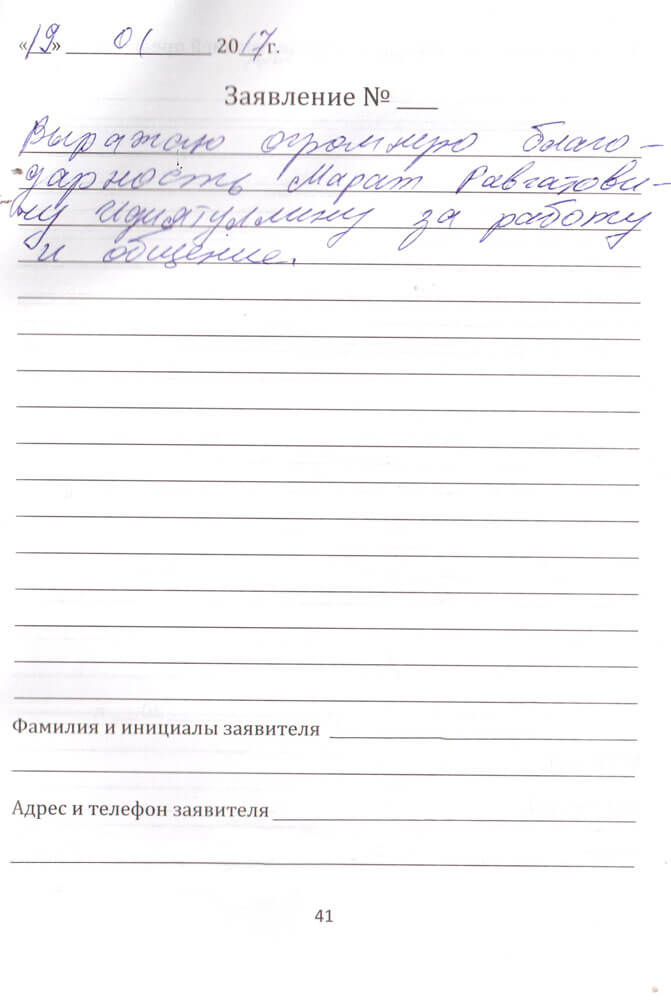 «19» 01 2017г.
Заявление № ___
Выражаю огромную благо-
дарность Марат Равгатови-
чу Идиятуллину за работу
и общение.
Фамилия и инициалы заявителя
Адрес и телефон заявителя
41